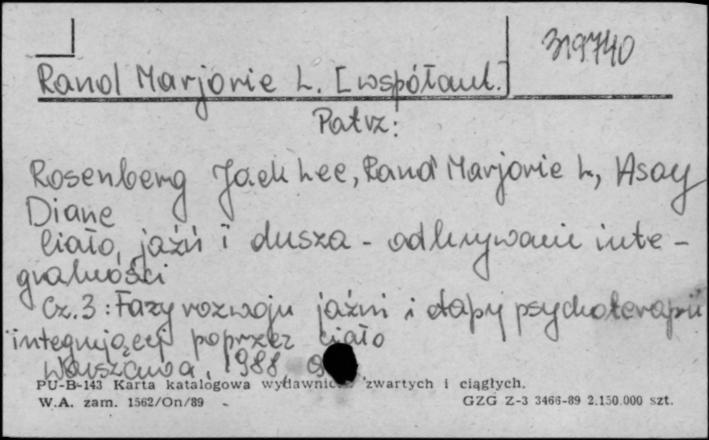 319740
Rand Marjorie L. [współaut.]
Patrz:
Rosenberg Jack Lee, Rand Marjorie L, Asay
Diane
Ciało, jaźń i dusza - odkrywanie inte-
gralności
Cz. 3: Fazy rozwoju jaźni i etapy psychoterapii
integrującej poprzez ciało
Warszawa, 1988
PU-B-143 Karta katalogowa wydawnic zwartych i ciągłych.
W.A. zam. 1562/On/89 GZG Z-3 3466-89 2.150.000 szt.